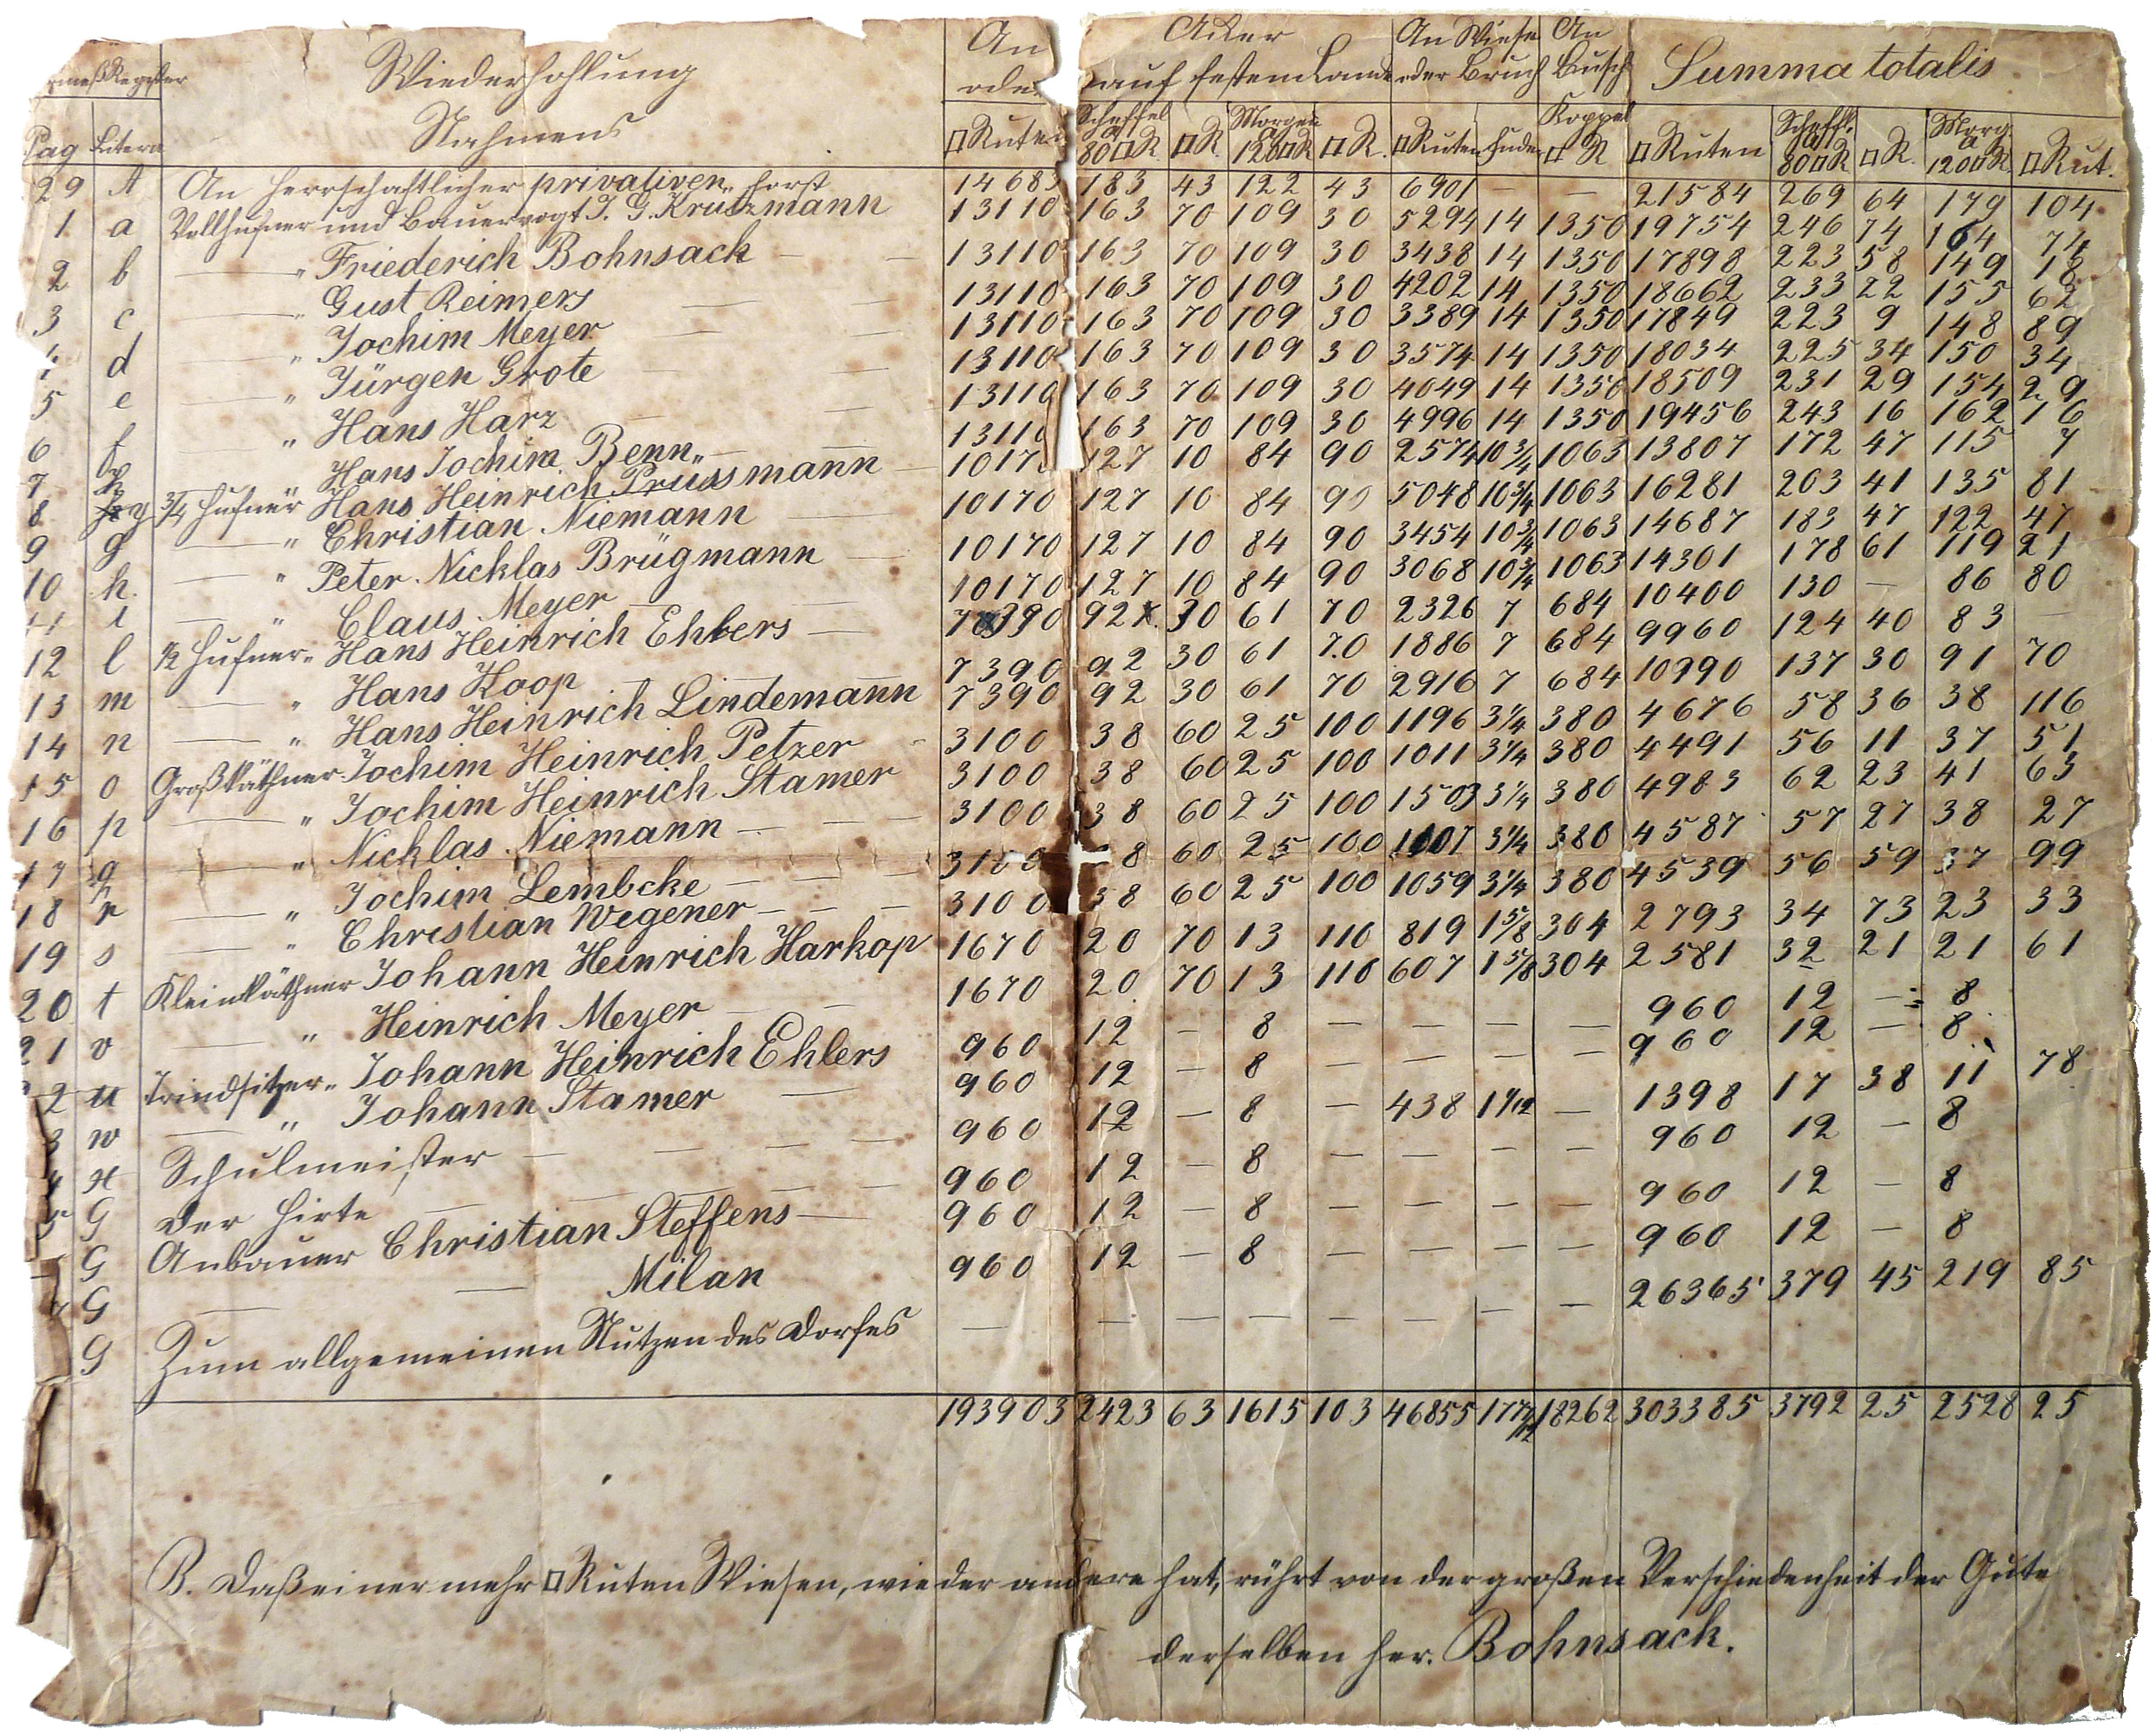 Wiederhohlung
An Acker An Wiese An
rmeß Register oder auf festen Lande oder Bruch Busch Summa totalis
Nahmens Koppel
Pag Litera □Ruten Scheffel a 80□R □R. Morgen a 120□R □R. □Ruten Fuder □R □Ruten Scheffl. a 80□R □R. Morg. a 120□R □Rut.
29 A An Herrschaftlicher privativen Forst 14683 183 43 122 43 6901 — — 21584 269 64 179 104
1 a Vollhufner und Bauervogt J. G. Kruszmann 13110 163 70 109 30 5294 14 1350 19754 246 74 164 74
2 b — " Friederich Bohnsack 13110 163 70 109 30 3438 14 1350 17898 223 58 149 18
3 c — " Gust Reimers 13110 163 70 109 30 4202 14 1350 18662 233 22 155 62
4 d " Jochim Meyer 13110 163 70 109 30 3389 14 1350 17849 223 9 148 89
5 e " Jürgen Grote 13110 163 70 109 30 3574 14 1350 18034 225 34 150 34
6 f " Hans Harz 13110 163 70 109 30 4049 14 1350 18509 231 29 154 29
7 Hans Jochim Benn 13110 163 70 109 30 4996 14 1350 19456 243 16 162 16
8 g ¾ Hufner Hans Heinrich Prüssmann 10170 127 10 84 90 2574 10¾ 1063 13807 172 47 115 7
9 g — " Christian Niemann 10170 127 10 84 90 5048 10¾ 1063 16281 203 41 135 81
10 h. — " Peter Nicklas Brügmann 10170 127 10 84 90 3454 10¾ 1063 14687 183 47 122 47
11 i — " Claus Meyer 10170 127 10 84 90 3068 10¾ 1063 14301 178 61 119 21
12 l ½ Hufner " Hans Heinrich Ehlers 7390 92 30 61 70 2326 7 684 10400 130 — 86 80
13 m — " Hans Koop 7390 92 30 61 70 1886 7 684 9960 124 40 83 —
14 n — " Hans Heinrich Lindemann 7390 92 30 61 70 2916 7 684 10990 137 30 91 70
15 o Großkäthner Jochim Heinrich Petzer 3100 38 60 25 100 1196 3¼ 380 4676 58 36 38 116
16 p — " Jochim Heinrich Stamer 3100 38 60 25 100 1011 3¼ 380 4491 56 11 37 51
17 q — " Nicklas Niemann 3100 38 60 25 100 1503 3¼ 380 4983 62 23 41 63
18 r — " Jochim Lembcke 3100 8 60 25 100 1107 3¼ 380 4587 57 27 38 27
19 s — " Christian Wegener 3100 38 60 25 100 1059 3¼ 380 4539 56 59 37 99
20 t Kleinkäthner Johann Heinrich Harkop 1670 20 70 13 110 819 1⅝ 304 2793 34 73 23 33
21 v — " Heinrich Meyer 1670 20 70 13 110 607 1⅝ 304 2581 32 21 21 61
2 u Trindsitzer " Johann Heinrich Ehlers 960 12 — 8 — — — — 960 12 — 8
3 w — " Johann Stamer 960 12 — 8 — — — — 960 12 — 8
4 x Schulmeister 960 12 — 8 — 438 1 1/12 — 1398 17 38 11 78
5 G Der Hirte 960 12 — 8 — — — — 960 12 — 8
G Anbauer Christian Steffens 960 12 — 8 — — — — 960 12 — 8
G — — Milan 960 12 — 8 — — — — 960 12 — 8
G Zum allgemeinen Nutzen des Dorfes — — — — — — — — 26365 379 45 219 85
193903 2423 63 1615 103 46855 177 18262 303385 3792 25 2528 25
B. Daß einer mehr □Ruten Wiesen, wie der andere hat, rührt von der großen Verschiedenheit der Güte
derselben her. Bohnsack.